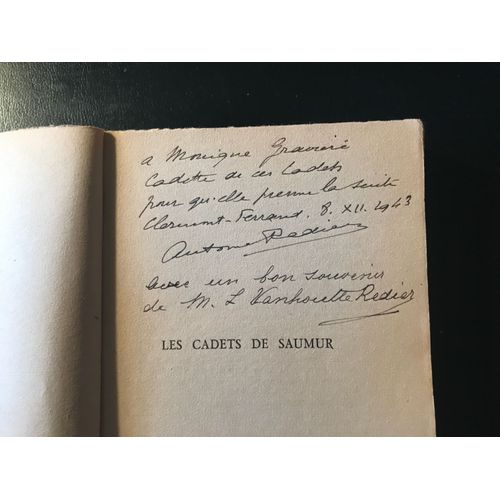 a Monique Gravière
Cadette de ces Cadets
pour qu'elle prenne la suite
Clermont-Ferrand. 8. XII. 1943
Antoine Redier
avec un bon souvenir
de M. L Vanhoutte Redier
LES CADETS DE SAUMUR